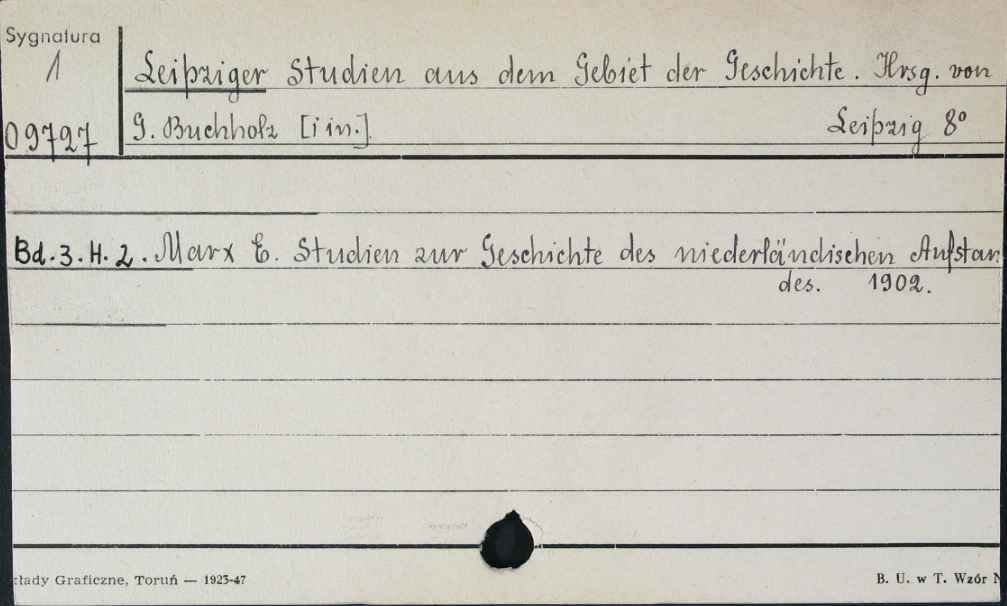 Sygnatura
1
09727
Leipziger Studien aus dem Gebiet der Geschichte. Hrsg. von
G. Buchholz [i in.] Leipzig 8°
Bd. 3. H. 2. Marx E. Studien zur Geschichte des niederländischen Aufstan
des. 1902.
kłady Graficzne, Toruń — 1923-47
B. U. w T. Wzór N